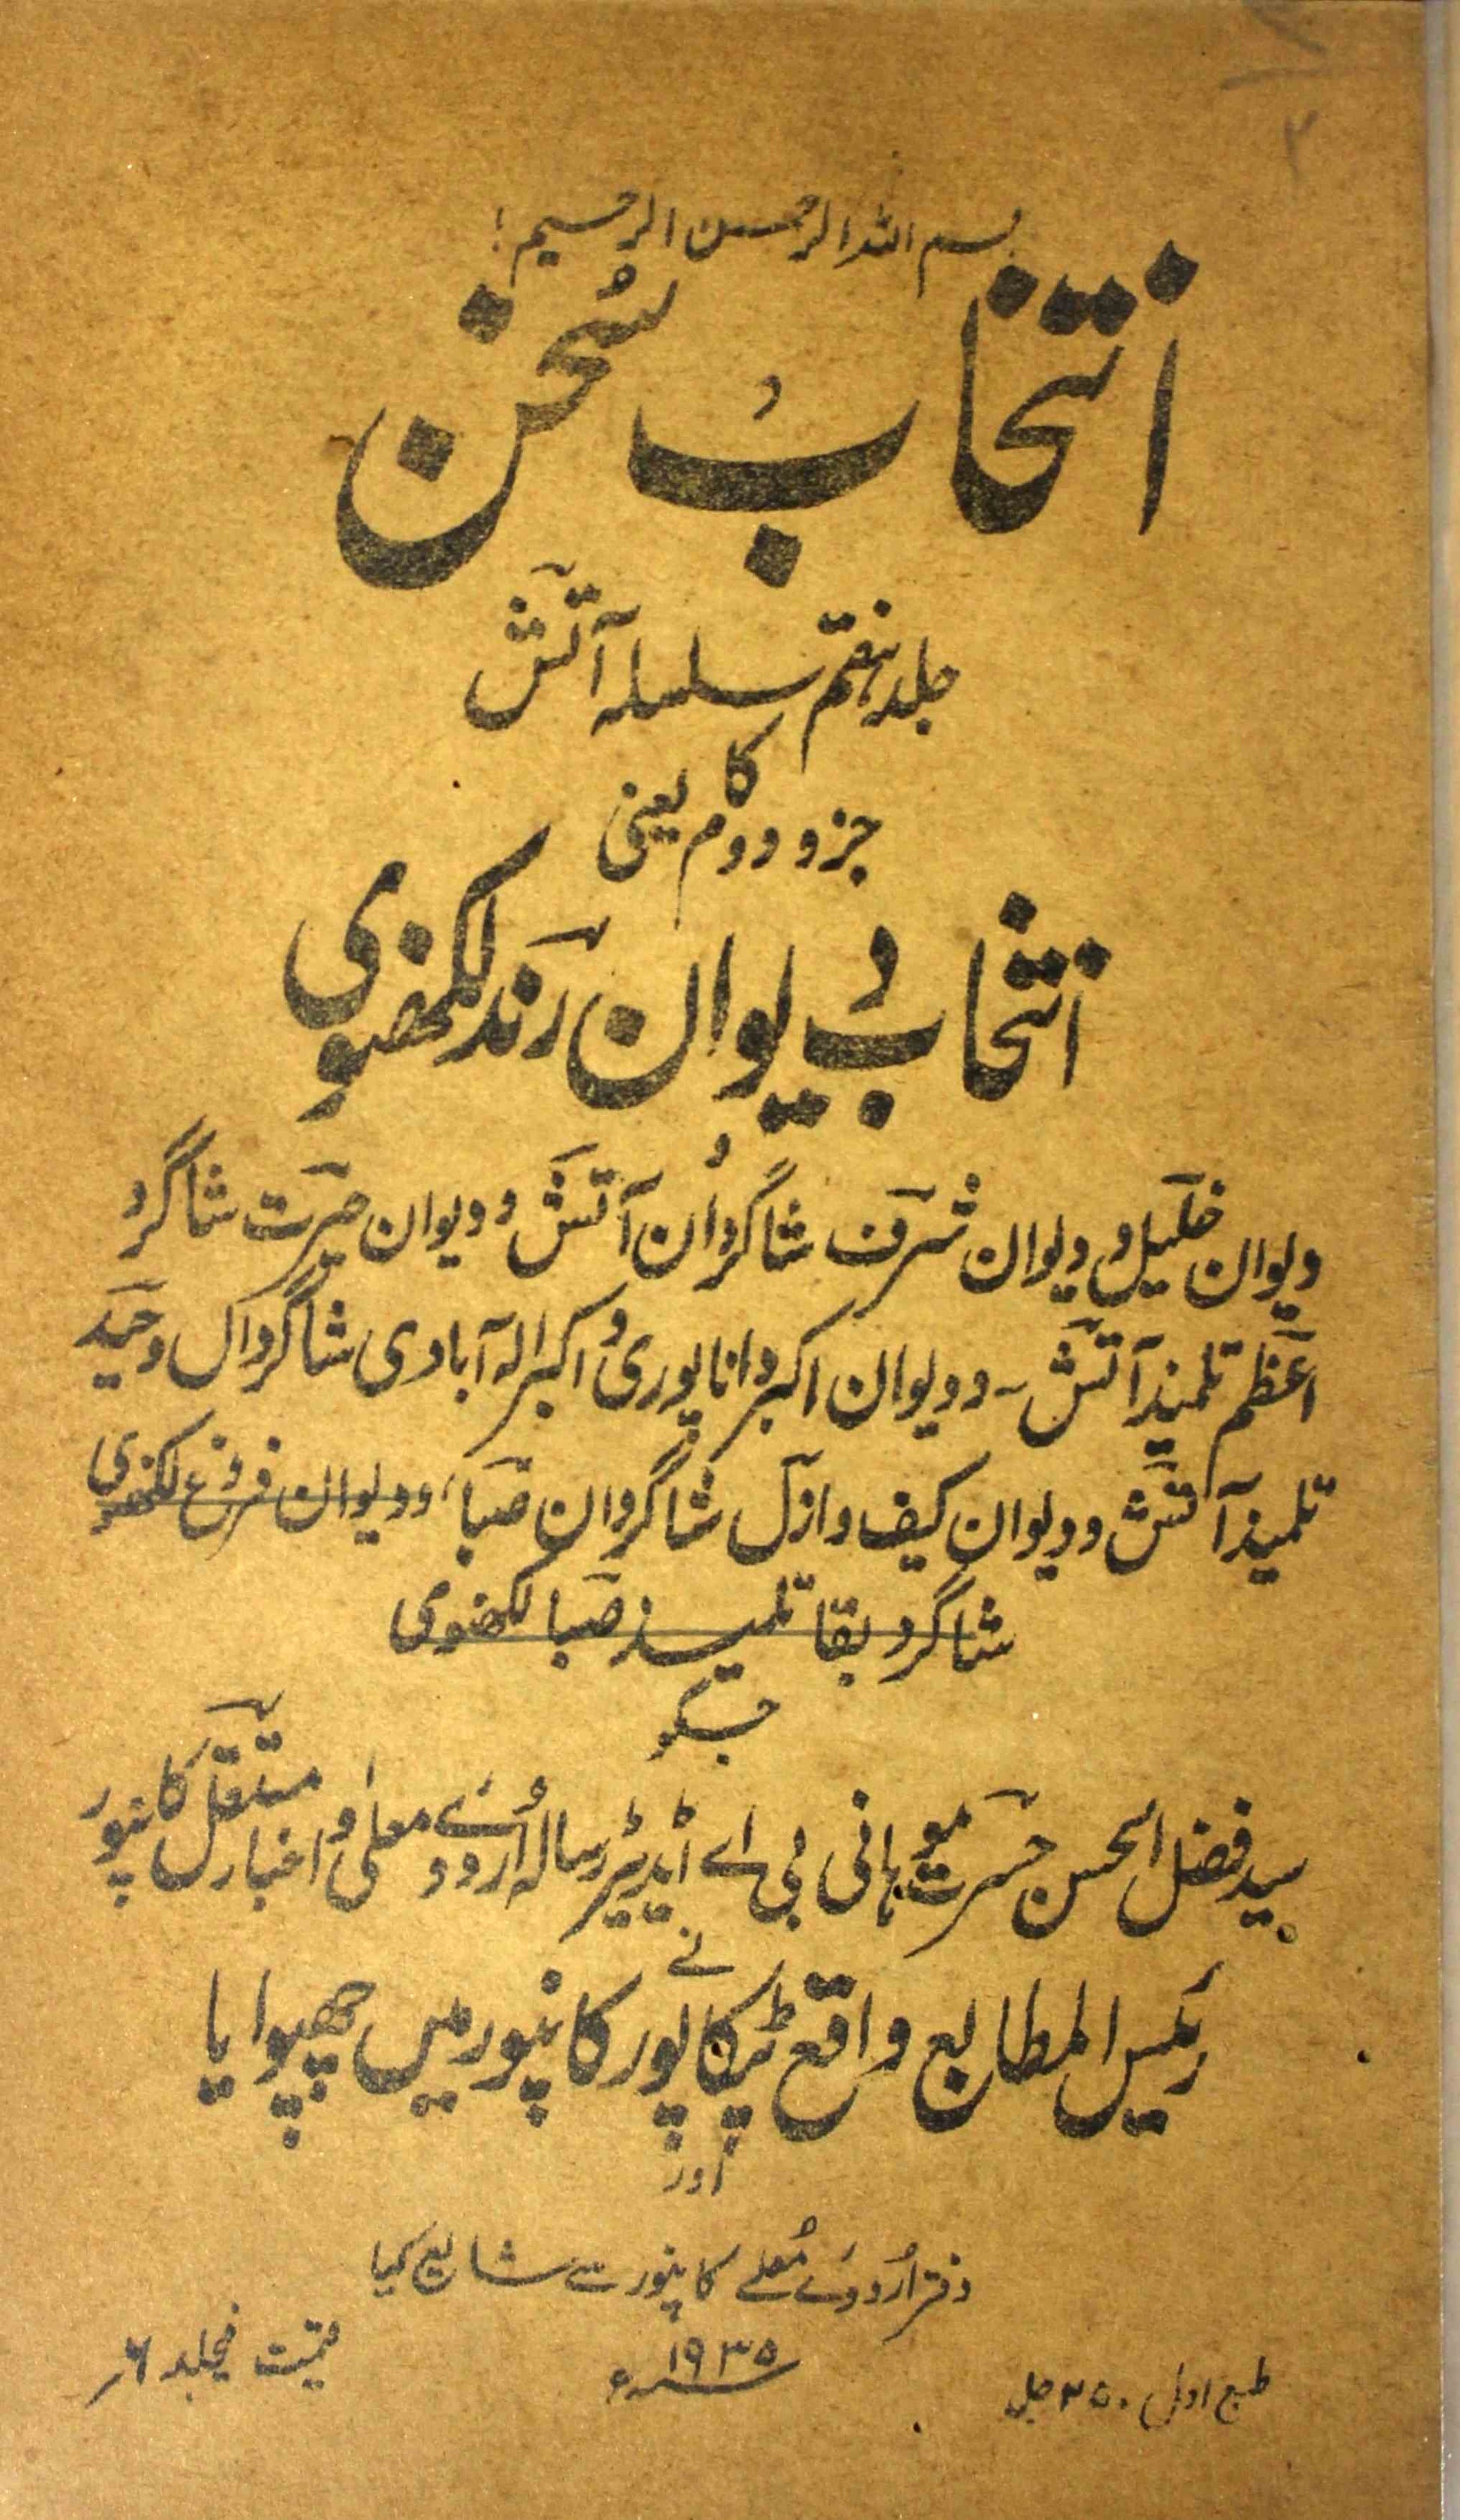 ۲
بسم اللہ الرحمن الرحیم!
انتخابِ سُخن
جلد ہفتم سلسلہ آتش
کا
جزو دوم یعنی
انتخاب دیوان رند لکھنوی
دیوان خلیل و دیوان شرف شاگردان آتش و دیوان حیرت شاگرد
اعظم تلمیذ آتش۔ و دیوان اکبر داناپوری و اکبر الہ آبادی شاگردان وحید
تلمیذ آتش و دیوان کیف و ازل شاگردان صبا، و دیوان فروغ لکھنوی
شاگرد بقا تلمیذ صبا لکھنوی
جسکو
سید فضل الحسن حسرت موہانی بی اے اڈیٹر رسالہ اُردوے معلیٰ و اخبار مستقل کانپور
نے
رئیس المطابع واقع ٹپکاپور کانپور میں چھپوایا
اور
دفتر اُردوے مُعلے کانپور سے شایع کیا
طبع اول ۲۵۰ جلد
۱۹۳۵ء
قیمت فیجلد ۶؍